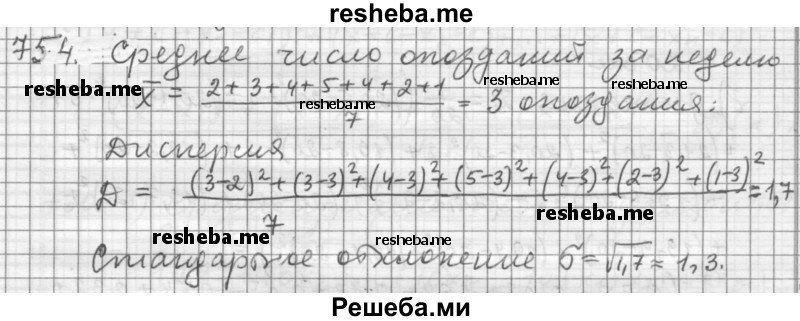 resheba.me
754. Среднее число опозданий за неделю
resheba.me resheba.me
x̄ = (2+3+4+5+4+2+1)/7 = 3 опоздания;
resheba.me
Дисперсия
Д = ((3-2)²+(3-3)²+(4-3)²+(5-3)²+(4-3)²+(2-3)²+(1-3)²)/7 = 1,7
resheba.me
resheba.me resheba.me
Стандартное отклонение б=√1,7≈1,3.
Решеба.ми